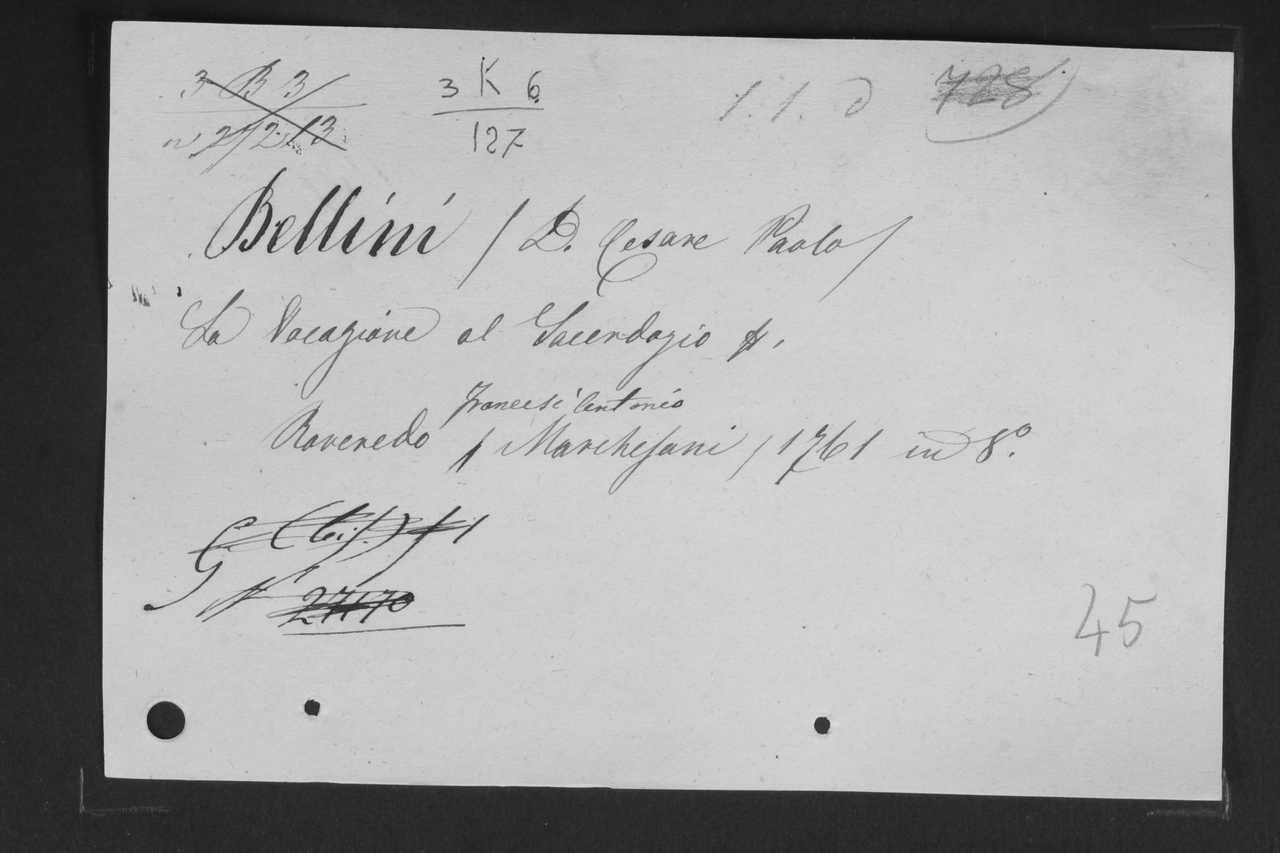 3 B 3 3 K 6 1. 1. d 728
n° 2/2.13 127
Bellini / D. Cesare Paolo /
La Vocazione al Sacerdozio &.
Francesc' Antonio
Roveredo / Marchesani / 1761 in 8°.
G (Bif.) f 1
N° 27170
45